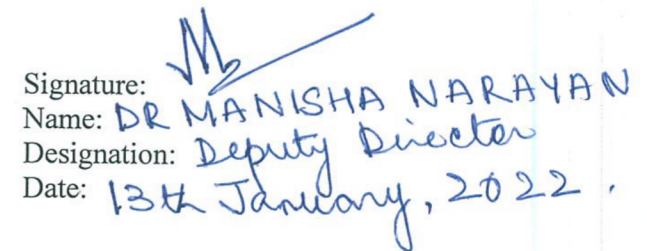 Signature:
Name: DR MANISHA NARAYAN
Designation: Deputy Director
Date: 13th January, 2022.